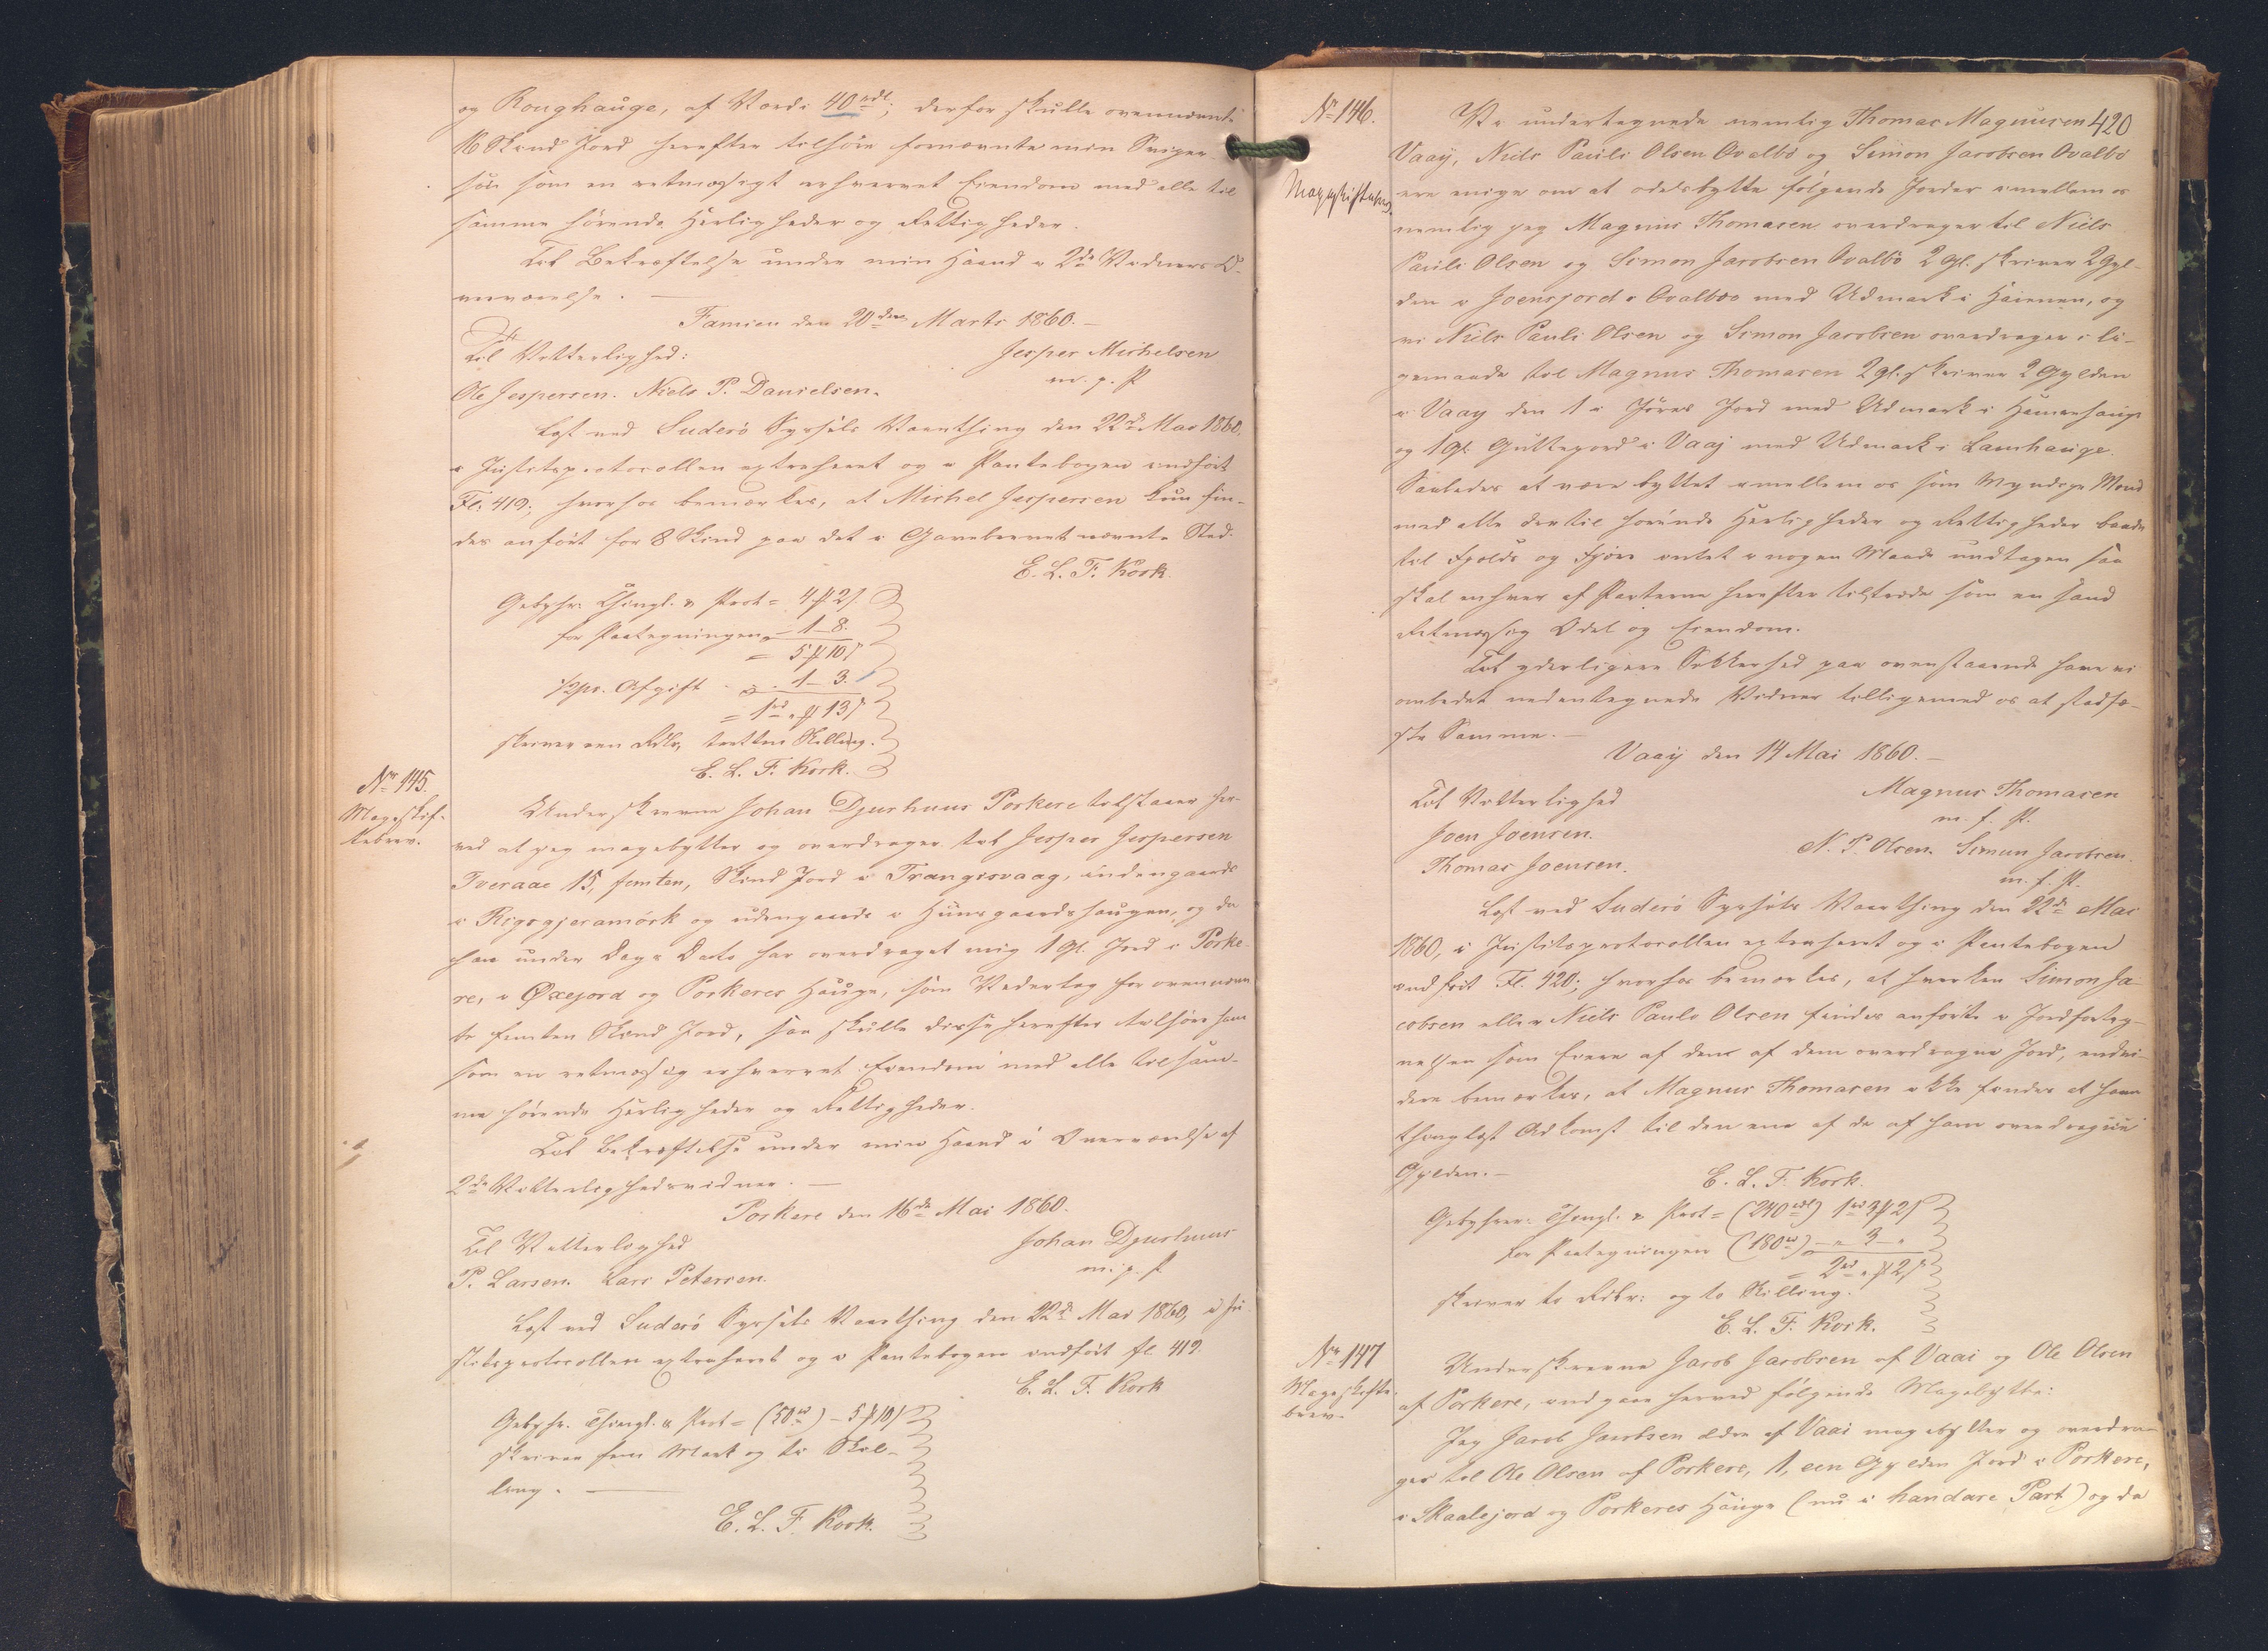 og Roughauge, af Værdi 40 rdl; derfor skulle ovennævnte
16 Skind Jord herefter tilhöre fornævnte min Sviger-
sön som en retmæssigt erhvervet Eiendom med alle til
samme hörende Herligheder og Rettigheder.
Til Bekræftelse under min Haand i 2de Vidners O-
verværelse. —
Famien den 20den Marts 1860. —
Til Vitterlighed: Jesper Michelsen
Ole Jespersen. Niels P. Danielsen. m. p. P
Læst ved Suderö Syssels Vaarthing den 22de Mai 1860,
i Justitsprotocollen extraheret og i Pantebogen indfört
Fl. 419; hvorhos bemærkes, at Michel Jespersen kun fin-
des anfört for 8 Skind paa det i Gavebrevet nævnte Sted.
E. L. F. Kock.
Gebyhr: Thingl. & Prot = 4 # 2 ß
for Paategningen = 1 - 8.
= 5 # 10 ß
½ pc. Afgift - 1 - 3.
= 1 rd „ # 13 ß
skriver een Rdlr, tretten Skilling.
E. L. F. Kock.
No 145.
Mageskif-
tebrev.
Underskrevne Johan Djurhuus Porkere tilstaaer her-
ved at jeg magebytter og overdrager til Jesper Jespersen
Tveraae 15, femten, Skind Jord i Trangisvaag, indengaards
i Rigsgjeramörk og udengaards i Huusgaardshaugen, og da
han under Dags Dato har overdraget mig 1 Gl. Jord i Porke-
re, i Øxejord og Porkeres Hauge, som Vederlag for ovennævn-
te femten Skind Jord, saa skulle disse herefter tilhöre ham
som en retmæssig erhvervet Eiendom med alle til sam-
me hörende Herligheder og Rettigheder.
Til Bekræftelse under min Haand i Overværelse af
2de Vitterlighedsvidner. —
Porkere den 16de Mai 1860.
Til Vitterlighed Johan Djurhuus
P. Larsen. Lars Petersen. m. p. P
Læst ved Suderö Syssels Vaarthing den 22de Mai 1860, i Ju-
stitsprotocollen extraheret og i Pantebogen indfört fl. 419.
E. L. F. Kock
Gebyhr. Thingl. & Prot = (50 rd) - 5 # 10 ß
skriver fem Mark og ti Skil-
ling. —
E. L. F. Kock.
No 146.
Mageskiftebrev.
420
Vi undertegnede nemlig Thomas Magnusen
Vaay, Niels Pauli Olsen Ovalbö og Simon Jacobsen Ovalbö
ere enige om at odelsbytte fölgende Jorder imellem os
nemlig jeg Magnus Thomasen overdrager til Niels
Pauli Olsen og Simon Jacobsen Ovalbö 2 Gl. skriver 2 Gyl-
den i Joensjord i Ovalboo med Udmark i Haienen, og
vi Niels Pauli Olsen og Simon Jacobsen overdrager i li-
gemaade til Magnus Thomasen 2 gl. skriver 2 Gylden
i Vaay den 1 i Jöres Jord med Udmark i Hamarhauge
og 1 gl. Guttegord i Vaaj med Udmark i Lamhauge.
Saaledes at være byttet imellem os som Myndige Mænd
med alle dertil hörende Herligheder og Rettigheder baade
til Fjelds og Fjöre intet i nogen Maade undtagen saa
skal enhver af Parterne herefter tiltræde som en sand
Retmæssig Odel og Eiendom.
Til yderligere Sikkerhed paa ovenstaaende have vi
ombedet nedentegnede Vidner tilligemed os at stadfæ-
ste Samme. —
Vaaÿ den 14 Mai 1860. —
Til Vitterlighed Magnus Thomasen
Joen Joensen. m. f. P.
Thomas Joensen. N. P. Olsen. Simun Jacobsen.
m. f. P.
Læst ved Suderö Syssels Vaarthing den 22de Mai
1860, i Justitsprotocollen extraheret og i Pantebogen
indfört Fl. 420; hvorhos bemærkes, at hverken Simon Ja-
cobsen eller Niels Paulo Olsen findes anförte i Jordforteg-
nelsen som Eiere af den af dem overdragne Jord, endvi-
dere bemærkes, at Magnus Thomasen ikke findes at have
thinglæst Adkomst til den ene af de af ham overdragne
Gylden. —
E. L. F. Kock.
Gebyhrer: Thingl. & Prot = (240 rdl) 1 rd 3 # 2 ß
for Paategningen (180 rd) - „ 3 - „
= 2 rd „ # 2 ß
skriver to Rdlr: og to Skilling.
E. L. F. Kock.
No 147
Mageskifte-
brev.
Underskrevne Jacob Jacobsen af Vaai og Ole Olsen
af Porkere, indgaae herved fölgende Magebytte:
Jeg Jacob Jacobsen ældre af Vaai magebytter og overdra-
ger til Ole Olsen af Porkere, 1, een Gylden Jord i Porkere,
i Skaalejord og Porkeres Hauge (nu i handare Part) og da